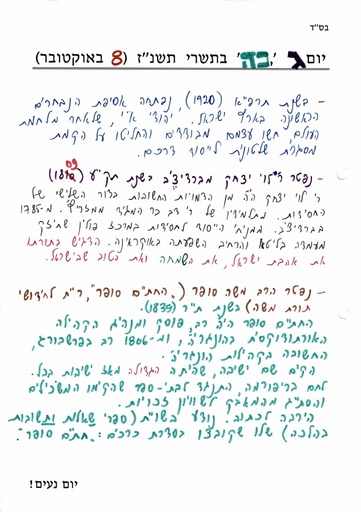 בס"ד
יום ג', כה' בתשרי תשנ"ז (8 באוקטובר)
- בשנת תרפ"א (1920), נפתחה אסיפת הנבחרים
הראשונה בארץ ישראל. יהודי א"י, שלאחר מלחמת
העולם, חשו עצמם מבודדים והחליטו על הקמת
מסגרת שלטונית לייסוד דרכם.
- נפטר ר' לוי יצחק מברדיצ'ב בשנת תק"ע (1809)
ר' לוי יצחק היה מן הדמויות החשובות בדור השלישי של
החסידות. מתלמידיו של ר' דב בר המגיד ממזריץ'. מ-1785
בברדיצ'ב. ממניחי היסוד לחסידות במרכז פולין שחיזק
מעמדה בליטא והרחיב השפעתה באוקראינה. הדגיש בתורתו
את אהבת ישראל, את השמחה ואת הטוב שבישראל.
- נפטר הרב משה סופר ("החת"ם סופר", ר"ת לחידושי
תורת משה) בשנת ת"ר (1839).
החת"ם סופר היה רב, פוסק ומנהיג הקהילה
האורתודוקסית בהונגריה, ומ-1806 רב בפרשבורג,
החשובה בקהילות הונגריה.
הקים שם ישיבה, שהיתה הגדולה מאז ישיבות בבל.
לחם בריפורמה, התנגד לבתי-ספר שהקימו המשכילים
והסתייג מהמאבק לשוויון זכויות.
הירבה לכתוב. נודע בשו"ת (ספרי שאלות ותשובות
בהלכה) שלו שקובצו בסדרת כרכים: "חת"ם סופר".
יום נעים!